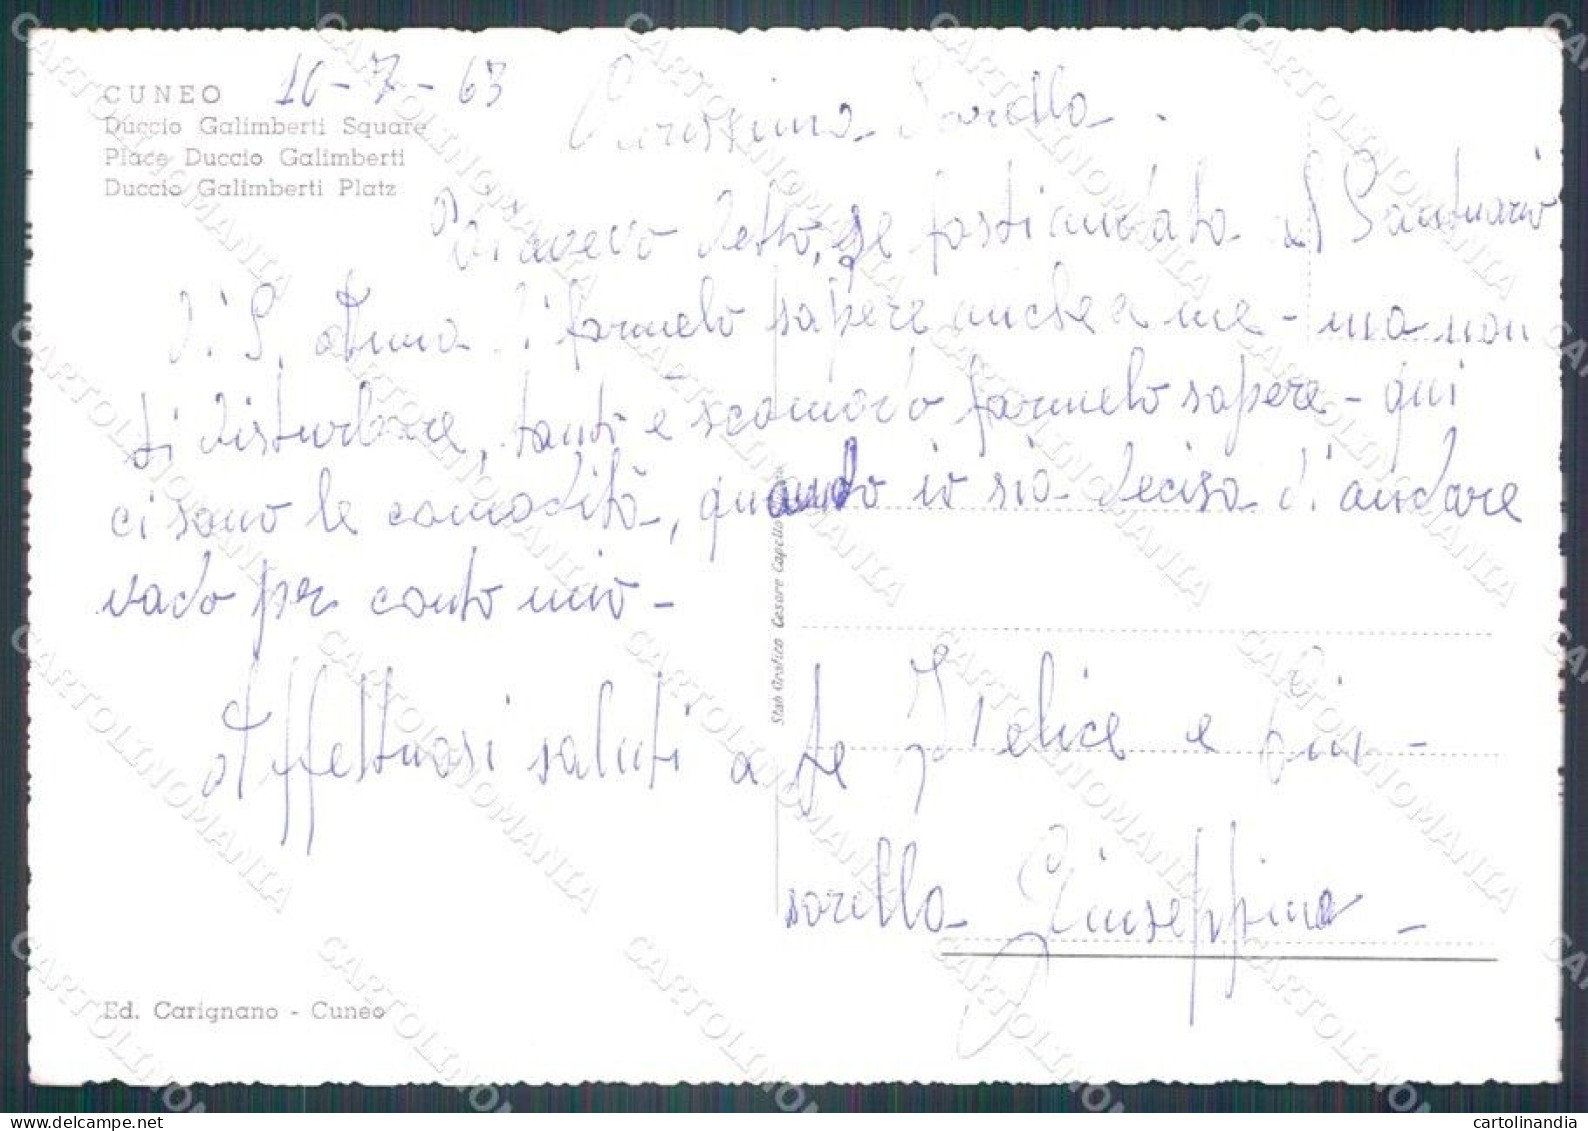 CUNEO
Duccio Galimberti Square
Place Duccio Galimberti
Duccio Galimberti Platz
10-7-63
Carissima Sorella
avevo detto, se fosti andata al Santuario
di S. Anna di farmelo sapere anche a me - ma non
ti disturbare, tanto è scomodo farmelo sapere - qui
ci sono le comodità, quando io sia decisa di andare
vado per conto mio -
Affettuosi saluti a te Felice e
sorella Giuseppina -
Stab Grafico Cesare Capello
Ed. Carignano - Cuneo
CARTOLINOMANIA
cartolinandia
www.delcampe.net